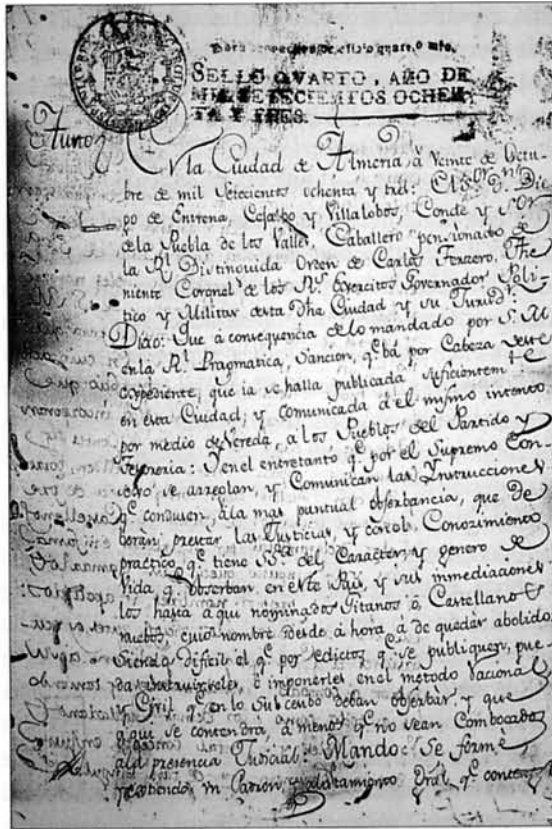 Para despachos de oficio quatro mrs.
SELLO QVARTO, AÑO DE
MIL SETECIENTOS OCHEN
TA Y TRES.
Auto
En la Ciudad de Almeria à veinte de Octu-
bre de mil setecientos ochenta y tres: El Sor. Dn. Die-
go de Entrena, y Villalobos, Conde y Sor
de la Puebla de los Valles, Caballero pensionado de
la Rl. Distinguida Orden de Carlos Terzero, The
niente Coronel de los Rs. Exercitos Governador Poli-
tico y Militar desta dha Ciudad y su Jurisdn.
Dixo: Que à consequencia de lo mandado por S. M
en la Rl. Pragmatica, Sancion, qe. bá por Cabeza deste
expediente, que ia se halla publicada suficientemte
en esta Ciudad, y comunicada d'el mismo intento
por medio de Vereda, a los Pueblos del Partido y
Thesoreria: Y en el entretanto qe. por el Supremo Con
sejo se arreglan, y Comunican las Ynstrucciones
qe. conducen, à la mas puntual obserbancia, que De
beran, prestar las Justicias, y con el Conozimiento
practico qe. tiene SSa. del Caracter, y genero de
Vida qe. obserban, en este Pais, y sus immediaciones
los hasta aqui nominados Gitanos ò Castellanos
nuebos, cuio nombre desde à hora, à de quedar abolido
Siendo dificil el qe. por edictos qe. se publiquen, pue
dan instruirseles, è imponerles en el metodo Racional
y Civil qe. en lo Subcesibo deban obserbar, y que
aqui se contendrà à menos qe. no sean Combocados
a la presencia Judicial: Mando: Se forme,
y extienda, un Padron, y alistamiento Gral. qe. conten